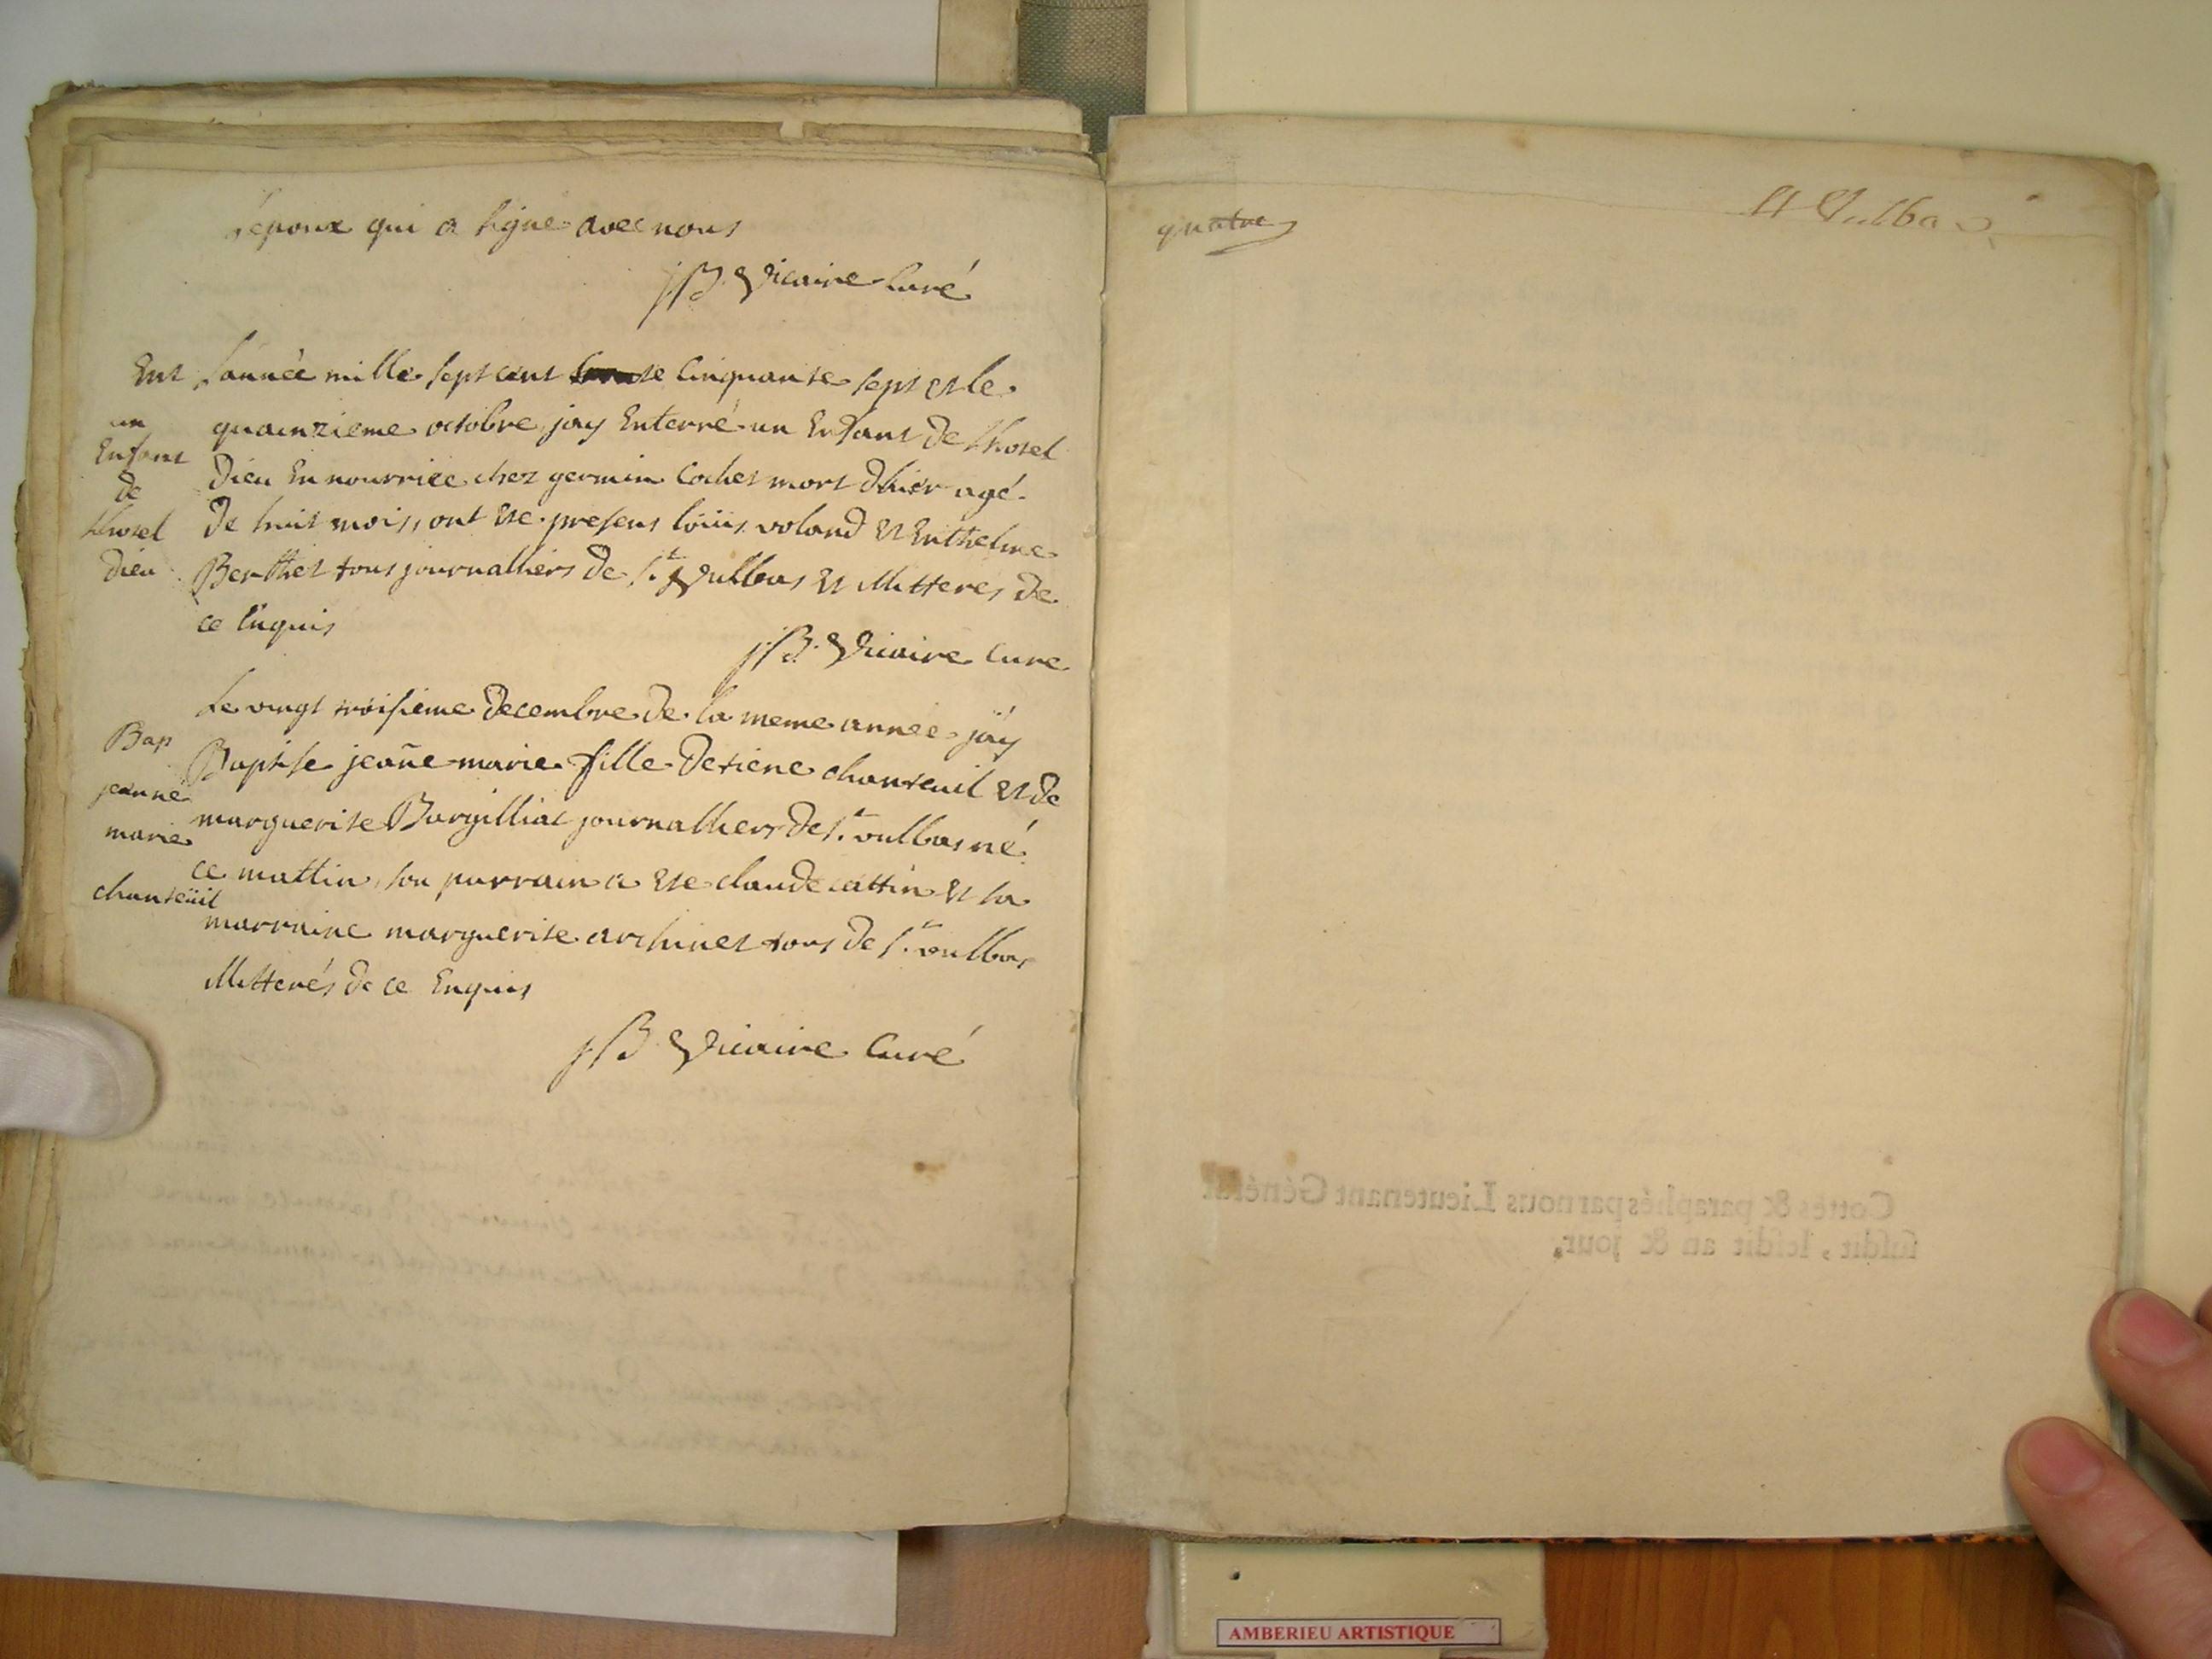 L'epoux qui a signe avec nous
j B. Vicaire Curé
Ent
un
Enfant
de
l'hotel
dieu
L'année mille sept cent cinquante sept et le
quainzieme octobre jay Enterré un Enfant de l'hotel
dieu En nourrice chez germin Cochet mort dhier agé
de huit mois, ont ete presens loüis voland et Enthelme
Berthet tous journalliers de St. Vulbas et illitteres de
ce Enquis
j B. Vicaire Cure
Bap
jeanne
marie
chanteüil
Le vingt troisieme decembre de la meme année jäy
Baptise jeañe marie fille detiene chanteuil et de
marguerite Bargilliat journalliers de St. vulbas né
ce mattin, son parrain a ete claude cattin et sa
marraine marguerite archinet tous de St. vulbas
illitterés de ce Enquis
j B. Vicaire Curé
quatre
St Vulbas
Cottés & paraphés par nous Lieutenant Général
susdit, lesdit an & jour,
AMBERIEU ARTISTIQUE